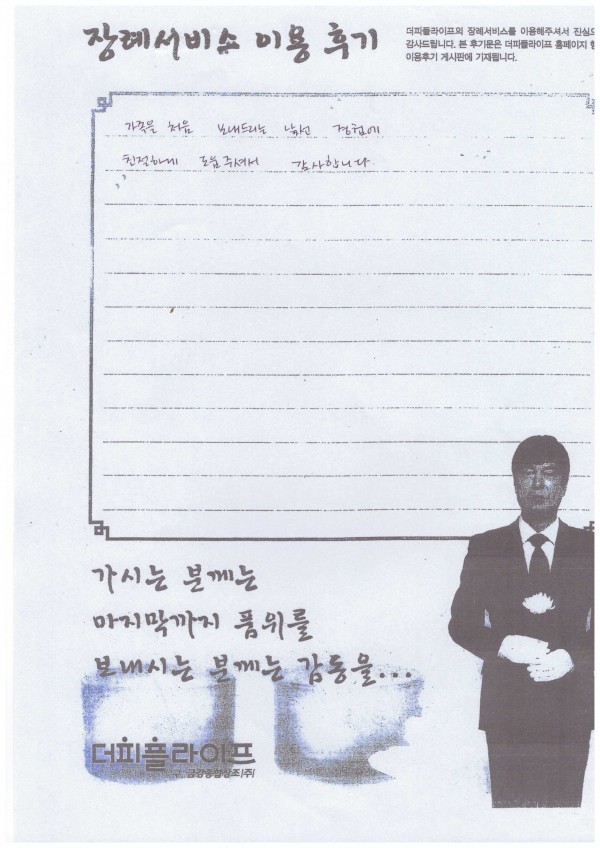 장례서비스 이용 후기
더피플라이프의 장례서비스를 이용해주셔서 진심으
감사드립니다. 본 후기문은 더피플라이프 홈페이지
이용후기 게시판에 기재됩니다.
가족을 처음 보내드리는 낯선 경험에
친절하게 도움주셔서 감사합니다
가시는 분께는
마지막까지 품위를
보내시는 분께는 감동을...
더피플라이프
금강종합상조(주)